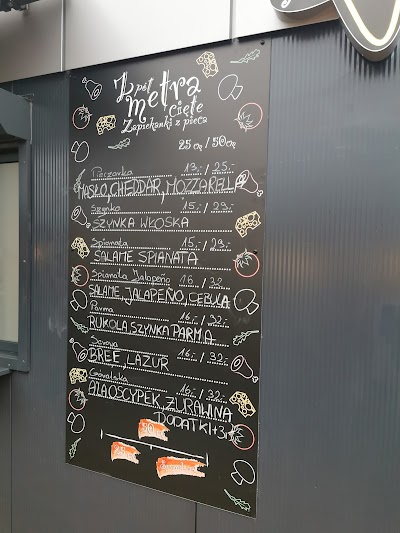 Z pół
metra
cięte
Zapiekanki z pieca
25 cm / 50 cm
Pieczarka 13,- / 25,-
MASŁO, CHEDDAR, MOZZARELLA
Szynka 15,- / 29,-
SZYNKA WŁOSKA
Spianata 15,- / 29,-
SALAME SPIANATA
Spianata Jalapeño 16,- / 32,-
SALAME, JALAPEÑO, CEBULA
Parma 16,- / 32,-
RUKOLA, SZYNKA PARMA
Savoja 16,- / 32,-
BREE, LAZUR
Góralska 16,- / 32,-
ALA OSCYPEK, ŻURAWINA
DODATKI +3,-
50